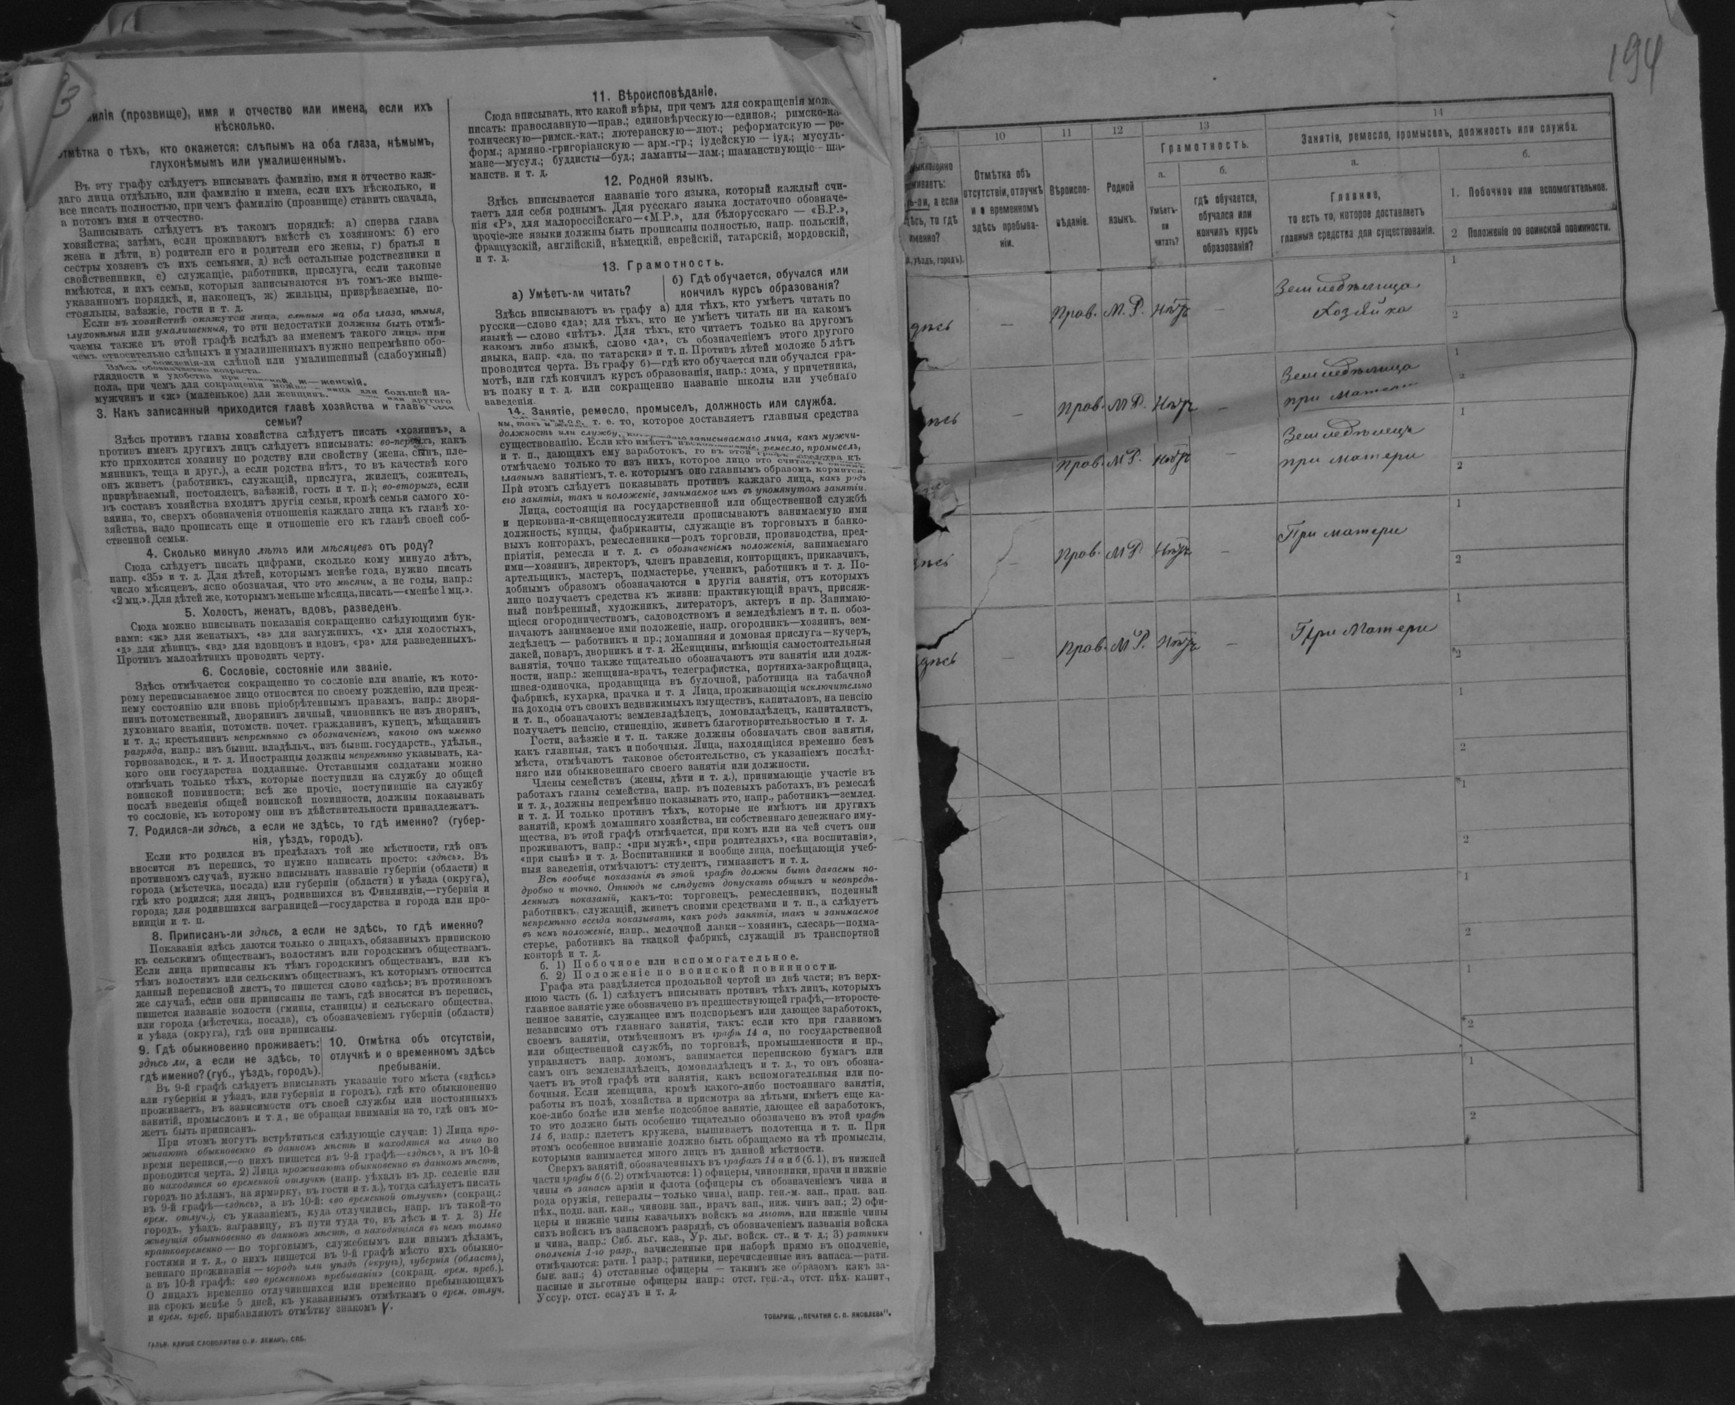 милія (прозвище), имя и отчество или имена, если ихъ
нѣсколько.
отмѣтка о тѣхъ, кто окажется: слѣпымъ на оба глаза, нѣмымъ,
глухонѣмымъ или умалишеннымъ.
Въ эту графу слѣдуетъ вписывать фамилію, имя и отчество каж-
даго лица отдѣльно, или фамилію и имена, если ихъ нѣсколько, и
все писать полностью, при чемъ фамилію (прозвище) ставить сначала,
а потомъ имя и отчество.
Записывать слѣдуетъ въ такомъ порядкѣ: а) сперва глава
хозяйства; затѣмъ, если проживаютъ вмѣстѣ съ хозяиномъ: б) его
жена и дѣти, в) родители его и родители его жены, г) братья и
сестры хозяевъ съ ихъ семьями, д) всѣ остальные родственники и
свойственники, е) служащіе, работники, прислуга, если таковые
имѣются, и ихъ семьи, которыя записываются въ томъ-же выше-
указанномъ порядкѣ, и, наконецъ, ж) жильцы, призрѣваемые, по-
стояльцы, заѣзжіе, гости и т. д.
Если въ хозяйствѣ окажутся лица, слѣпыя на оба глаза, нѣмыя,
глухонѣмыя или умалишенныя, то эти недостатки должны быть отмѣ-
чаемы также въ этой графѣ вслѣдъ за именемъ такого лица, при
чемъ относительно слѣпыхъ и умалишенныхъ нужно непремѣнно обо-
слѣпой или умалишенный (слабоумный)
3. Какъ записанный приходится главѣ хозяйства и главѣ своей
семьи?
Здѣсь противъ главы хозяйства слѣдуетъ писать «хозяинъ», а
противъ именъ другихъ лицъ слѣдуетъ вписывать: во-первыхъ, какъ
кто приходится хозяину по родству или свойству (жена, сынъ, пле-
мянникъ, теща и друг.), а если родства нѣтъ, то въ качествѣ кого
онъ живетъ (работникъ, служащій, прислуга, жилецъ, сожитель,
призрѣваемый, постоялецъ, заѣзжій, гость и т. п.); во-вторыхъ, если
въ составъ хозяйства входятъ другія семьи, кромѣ семьи самого хо-
зяина, то, сверхъ обозначенія отношенія каждаго лица къ главѣ хо-
зяйства, надо прописать еще и отношеніе его къ главѣ своей соб-
ственной семьи.
4. Сколько минуло лѣтъ или мѣсяцевъ отъ роду?
Сюда слѣдуетъ писать цифрами, сколько кому минуло лѣтъ,
напр. «35» и т. д. Для дѣтей, которымъ менѣе года, нужно писать
число мѣсяцевъ, ясно обозначая, что это мѣсяцы, а не годы, напр.:
«2 мц.». Для дѣтей же, которымъ меньше мѣсяца, писать—«менѣе 1 мц.».
5. Холостъ, женатъ, вдовъ, разведенъ.
Сюда можно вписывать показанія сокращенно слѣдующими бук-
вами: «ж» для женатыхъ, «з» для замужнихъ, «х» для холостыхъ,
«д» для дѣвицъ, «вд» для вдовцовъ и вдовъ, «рз» для разведенныхъ.
Противъ малолѣтнихъ проводить черту.
6. Сословіе, состояніе или званіе.
Здѣсь отмѣчается сокращенно то сословіе или званіе, къ кото-
рому переписываемое лицо относится по своему рожденію, или преж-
нему состоянію или вновь пріобрѣтеннымъ правамъ, напр.: дворя-
нинъ потомственный, дворянинъ личный, чиновникъ не изъ дворянъ,
духовнаго званія, потомств. почет. гражданинъ, купецъ, мѣщанинъ
и т. д.; крестьянинъ непремѣнно съ обозначеніемъ, какого онъ именно
разряда, напр.: изъ бывш. владѣльч., изъ бывш. государств., удѣльн.,
горнозаводск., и т. д. Иностранцы должны непремѣнно указывать, ка-
кого они государства подданные. Отставными солдатами можно
отмѣчать только тѣхъ, которые поступили на службу до общей
воинской повинности; всѣ же прочіе, поступившіе на службу
послѣ введенія общей воинской повинности, должны показывать
то сословіе, къ которому они въ дѣйствительности принадлежатъ.
7. Родился-ли здѣсь, а если не здѣсь, то гдѣ именно? (губер-
нія, уѣздъ, городъ).
Если кто родился въ предѣлахъ той же мѣстности, гдѣ онъ
вносится въ перепись, то нужно написать просто: «здѣсь». Въ
противномъ случаѣ, нужно вписывать названіе губерніи (области) и
города (мѣстечка, посада) или губерніи (области) и уѣзда (округа),
гдѣ кто родился; для лицъ, родившихся въ Финляндіи,—губерніи и
города; для родившихся заграницей—государства и города или про-
винціи и т. п.
8. Приписанъ-ли здѣсь, а если не здѣсь, то гдѣ именно?
Показанія здѣсь даются только о лицахъ, обязанныхъ припискою
къ сельскимъ обществамъ, волостямъ или городскимъ обществамъ.
Если лица приписаны къ тѣмъ городскимъ обществамъ, или къ
тѣмъ волостямъ или сельскимъ обществамъ, къ которымъ относится
данный переписной листъ, то пишется слово «здѣсь»; въ противномъ
же случаѣ, если они приписаны не тамъ, гдѣ вносятся въ перепись,
пишется названіе волости (гмины, станицы) и сельскаго общества,
или города (мѣстечка, посада), съ обозначеніемъ губерніи (области)
и уѣзда (округа), гдѣ они приписаны.
9. Гдѣ обыкновенно проживаетъ:
здѣсь ли, а если не здѣсь, то
гдѣ именно? (губ., уѣздъ, городъ).
10. Отмѣтка объ отсутствіи,
отлучкѣ и о временномъ здѣсь
пребываніи.
Въ 9-й графѣ слѣдуетъ вписывать указаніе того мѣста («здѣсь»
или губернія и уѣздъ, или губернія и городъ), гдѣ кто обыкновенно
проживаетъ, въ зависимости отъ своей службы или постоянныхъ
занятій, промысловъ и т. д., не обращая вниманія на то, гдѣ онъ мо-
жетъ быть приписанъ.
При этомъ могутъ встрѣтиться слѣдующіе случаи: 1) Лица про-
живаютъ обыкновенно въ данномъ мѣстѣ и находятся на лицо во
время переписи,—о нихъ пишется въ 9-й графѣ—«здѣсь», а въ 10-й
проводится черта. 2) Лица проживаютъ обыкновенно въ данномъ мѣстѣ,
но находятся во временной отлучкѣ (напр. уѣхалъ въ др. селеніе или
городъ по дѣламъ, на ярмарку, въ гости и т. д.), тогда слѣдуетъ писать
въ 9-й графѣ—«здѣсь», а въ 10-й: «во временной отлучкѣ» (сокращ.:
врем. отлуч.), съ указаніемъ, куда отлучились, напр. въ такой-то
городъ, уѣздъ, заграницу, въ пути туда то, въ лѣсъ и т. д. 3) Не
живущія обыкновенно въ данномъ мѣстѣ, а находятся въ немъ только
кратковременно — по торговымъ, служебнымъ или инымъ дѣламъ,
гостями и т. д., о нихъ пишется въ 9-й графѣ мѣсто ихъ обыкно-
веннаго проживанія — городъ или уѣздъ (округъ), губернія (область),
а въ 10-й графѣ: «во временномъ пребываніи» (сокращ. врем. преб.).
О лицахъ временно отлучившихся или временно пребывающихъ
на срокъ менѣе 5 дней, къ указаннымъ отмѣткамъ о врем. отлуч.
и врем. преб. прибавляютъ отмѣтку знакомъ V.
11. Вѣроисповѣданіе.
Сюда вписывать, кто какой вѣры, при чемъ для сокращенія можно
писать: православную—прав.; единовѣрческую—единов.; римско-ка-
толическую—римск.-кат.; лютеранскую—лют.; реформатскую — ре-
форм.; армяно.-григоріанскую — арм.-гр.; іудейскую — іуд.; мусуль-
мане—мусул.; буддисты—буд.; ламаиты—лам.; шаманствующіе – ша-
манств. и т. д.
12. Родной языкъ.
Здѣсь вписывается названіе того языка, который каждый счи-
таетъ для себя роднымъ. Для русскаго языка достаточно обозначе-
нія «Р», для малороссійскаго—«М.Р.», для бѣлорусскаго — «Б.Р.»,
прочіе-же языки должны быть прописаны полностью, напр. польскій,
французскій, англійскій, нѣмецкій, еврейскій, татарскій, мордовскій,
и т. д.
13. Грамотность.
а) Умѣетъ-ли читать?
б) Гдѣ обучается, обучался или
кончилъ курсъ образованія?
Здѣсь вписываютъ въ графу а) для тѣхъ, кто умѣетъ читать по
русски—слово «да»; для тѣхъ, кто не умѣетъ читать ни на какомъ
языкѣ — слово «нѣтъ». Для тѣхъ, кто читаетъ только на другомъ
какомъ либо языкѣ, слово «да», съ обозначеніемъ этого другого
языка, напр. «да, по татарски» и т. п. Противъ дѣтей моложе 5 лѣтъ
проводится черта. Въ графу б)—гдѣ кто обучается или обучался гра-
мотѣ, или гдѣ кончилъ курсъ образованія, напр.: дома, у причетника,
въ полку и т. д. или сокращенно названіе школы или учебнаго
заведенія.
14. Занятіе, ремесло, промыселъ, должность или служба.
т. е. то, которое доставляетъ главныя средства
существованію. Если кто имѣетъ
и т. п., дающихъ ему заработокъ, то въ этой графѣ
отмѣчаемо только то изъ нихъ, которое лицо это считаетъ
главнымъ занятіемъ, т. е. которымъ оно главнымъ образомъ кормится.
При этомъ слѣдуетъ показывать противъ каждаго лица, какъ родъ
его занятія, такъ и положеніе, занимаемое имъ въ упомянутомъ занятіи.
Лица, состоящія на государственной или общественной службѣ
и церковно-и-священнослужители прописываютъ занимаемую ими
должность; купцы, фабриканты, служащіе въ торговыхъ и банко-
выхъ конторахъ, ремесленники—родъ торговли, производства, пред-
пріятія, ремесла и т. д. съ обозначеніемъ положенія, занимаемаго
ими—хозяинъ, директоръ, членъ правленія, конторщикъ, приказчикъ,
артельщикъ, мастеръ, подмастерье, ученикъ, работникъ и т. д. По-
добнымъ образомъ обозначаются и другія занятія, отъ которыхъ
лицо получаетъ средства къ жизни: практикующій врачъ, присяж-
ный повѣренный, художникъ, литераторъ, актеръ и пр. Занимаю-
щіеся огородничествомъ, садоводствомъ и земледѣліемъ и т. п. обоз-
начаютъ занимаемое ими положеніе, напр. огородникъ—хозяинъ, зем-
ледѣлецъ — работникъ и пр.; домашняя и домовая прислуга—кучеръ,
лакей, поваръ, дворникъ и т. д. Женщины, имѣющія самостоятельныя
занятія, точно также тщательно обозначаютъ эти занятія или долж-
ности, напр.: женщина-врачъ, телеграфистка, портниха-закройщица,
швея-одиночка, продавщица въ булочной, работница на табачной
фабрикѣ, кухарка, прачка и т. д Лица, проживающія исключительно
на доходы отъ своихъ недвижимыхъ имуществъ, капиталовъ, на пенсію
и т. п., обозначаютъ: землевладѣлецъ, домовладѣлецъ, капиталистъ,
получаетъ пенсію, стипендію, живетъ благотворительностью и т. д.
Гости, заѣзжіе и т. п. также должны обозначать свои занятія,
какъ главныя, такъ и побочныя. Лица, находящіяся временно безъ
мѣста, отмѣчаютъ таковое обстоятельство, съ указаніемъ послѣд-
няго или обыкновеннаго своего занятія или должности.
Члены семействъ (жены, дѣти и т. д.), принимающіе участіе въ
работахъ главы семейства, напр. въ полевыхъ работахъ, въ ремеслѣ
и т. д., должны непремѣнно показывать это, напр., работникъ—землед.
и т. д. И только противъ тѣхъ, которые не имѣютъ ни другихъ
занятій, кромѣ домашняго хозяйства, ни собственнаго денежнаго иму-
щества, въ этой графѣ отмѣчается, при комъ или на чей счетъ они
проживаютъ, напр.: «при мужѣ», «при родителяхъ», «на воспитаніи»,
«при сынѣ» и т. д. Воспитанники и вообще лица, посѣщающія учеб-
ныя заведенія, отмѣчаютъ: студентъ, гимназистъ и т. д.
Всѣ вообще показанія въ этой графѣ должны быть даваемы по-
дробно и точно. Отнюдь не слѣдуетъ допускать общихъ и неопредѣ-
ленныхъ показаній, какъ-то: торговецъ, ремесленникъ, поденный
работникъ, служащій, живетъ своими средствами и т. п., а слѣдуетъ
непремѣнно всегда показывать, какъ родъ занятія, такъ и занимаемое
въ немъ положеніе, напр., мелочной лавки—хозяинъ, слесарь—подма-
стерье, работникъ на ткацкой фабрикѣ, служащій въ транспортной
конторѣ и т. д.
б. 1) Побочное или вспомогательное.
б. 2) Положеніе по воинской повинности.
Графа эта раздѣляется продольной чертой на двѣ части; въ верх-
нюю часть (б. 1) слѣдуетъ вписывать противъ тѣхъ лицъ, которыхъ
главное занятіе уже обозначено въ предшествующей графѣ,—второсте-
пенное занятіе, служащее имъ подспорьемъ или дающее заработокъ,
независимо отъ главнаго занятія, такъ: если кто при главномъ
своемъ занятіи, отмѣченномъ въ графѣ 14 а, по государственной
или общественной службѣ, по торговлѣ, промышленности и пр.,
управляетъ напр. домомъ, занимается перепискою бумагъ или
самъ онъ землевладѣлецъ, домовладѣлецъ и т. д., то онъ обозна-
чаетъ въ этой графѣ эти занятія, какъ вспомогательныя или по-
бочныя. Если женщина, кромѣ какого-либо постояннаго занятія,
работы въ полѣ, хозяйства и присмотра за дѣтьми, имѣетъ еще ка-
кое-либо болѣе или менѣе подсобное занятіе, дающее ей заработокъ,
то это должно быть особенно тщательно обозначено въ этой графѣ
14 б, напр.: плететъ кружева, вышиваетъ полотенца и т. п. При
этомъ особенное вниманіе должно быть обращаемо на тѣ промыслы,
которыми занимается много лицъ въ данной мѣстности.
Сверхъ занятій, обозначенныхъ въ графахъ 14 а и б (б. 1), въ нижней
части графы б (б. 2) отмѣчаются: 1) офицеры, чиновники, врачи и нижніе
чины въ запасѣ арміи и флота (офицеры съ обозначеніемъ чина и
рода оружія, генералы—только чина), напр. ген.-м. зап., прап. зап.
пѣх., подп. зап. кав., чиновн. зап., врачъ зап., ниж. чинъ зап.; 2) офи-
церы и нижніе чины казачьихъ войскъ на льготѣ, или нижніе чины
сихъ войскъ въ запасномъ разрядѣ, съ обозначеніемъ названія войска
и чина, напр.: Сиб. льг. каз., Ур. льг. войск. ст., и т. д.; 3) ратники
ополченія 1-го разр., зачисленные при наборѣ прямо въ ополченіе,
отмѣчаются: ратн. 1 разр.; ратники, перечисленные изъ запаса.—ратн.
быв. зап.; 4) отставные офицеры — такимъ же образомъ какъ за-
пасные и льготные офицеры напр.: отст. ген.-л., отст. пѣх. капит.,
Уссур. отст. есаулъ и т. д.
ТОВАРИЩ. „ПЕЧАТНЯ С. П. ЯКОВЛЕВА“.
194
10
11
12
13
14
Отмѣтка объ
отсутствіи, отлучкѣ
и о временномъ
здѣсь пребыва-
ніи.
Вѣроиспо-
вѣданіе.
Родной
языкъ.
Грамотность.
а.
Умѣетъ-
ли
читать?
б.
гдѣ обучается,
обучался или
кончилъ курсъ
образованія?
Занятія, ремесло, промыселъ, должность или служба.
а.
Главное,
то есть то, которое доставляетъ
главныя средства для существованія.
б.
1. Побочное или вспомогательное.
2 Положеніе по воинской повинности.
Прав. М. Р. Нѣтъ — Земледѣлица
Хозяйка
1
2
Прав. М Р. Нѣтъ Земледѣлица
при матери
1
2
Прав. М Р. Нѣтъ Земледѣлецъ
при матери
1
2
Прав. М Р. Нѣтъ — При матери
1
2
Прав. М Р. Нѣтъ — При Матери
1
2
1
2
1
2
1
2
1
2
1
2